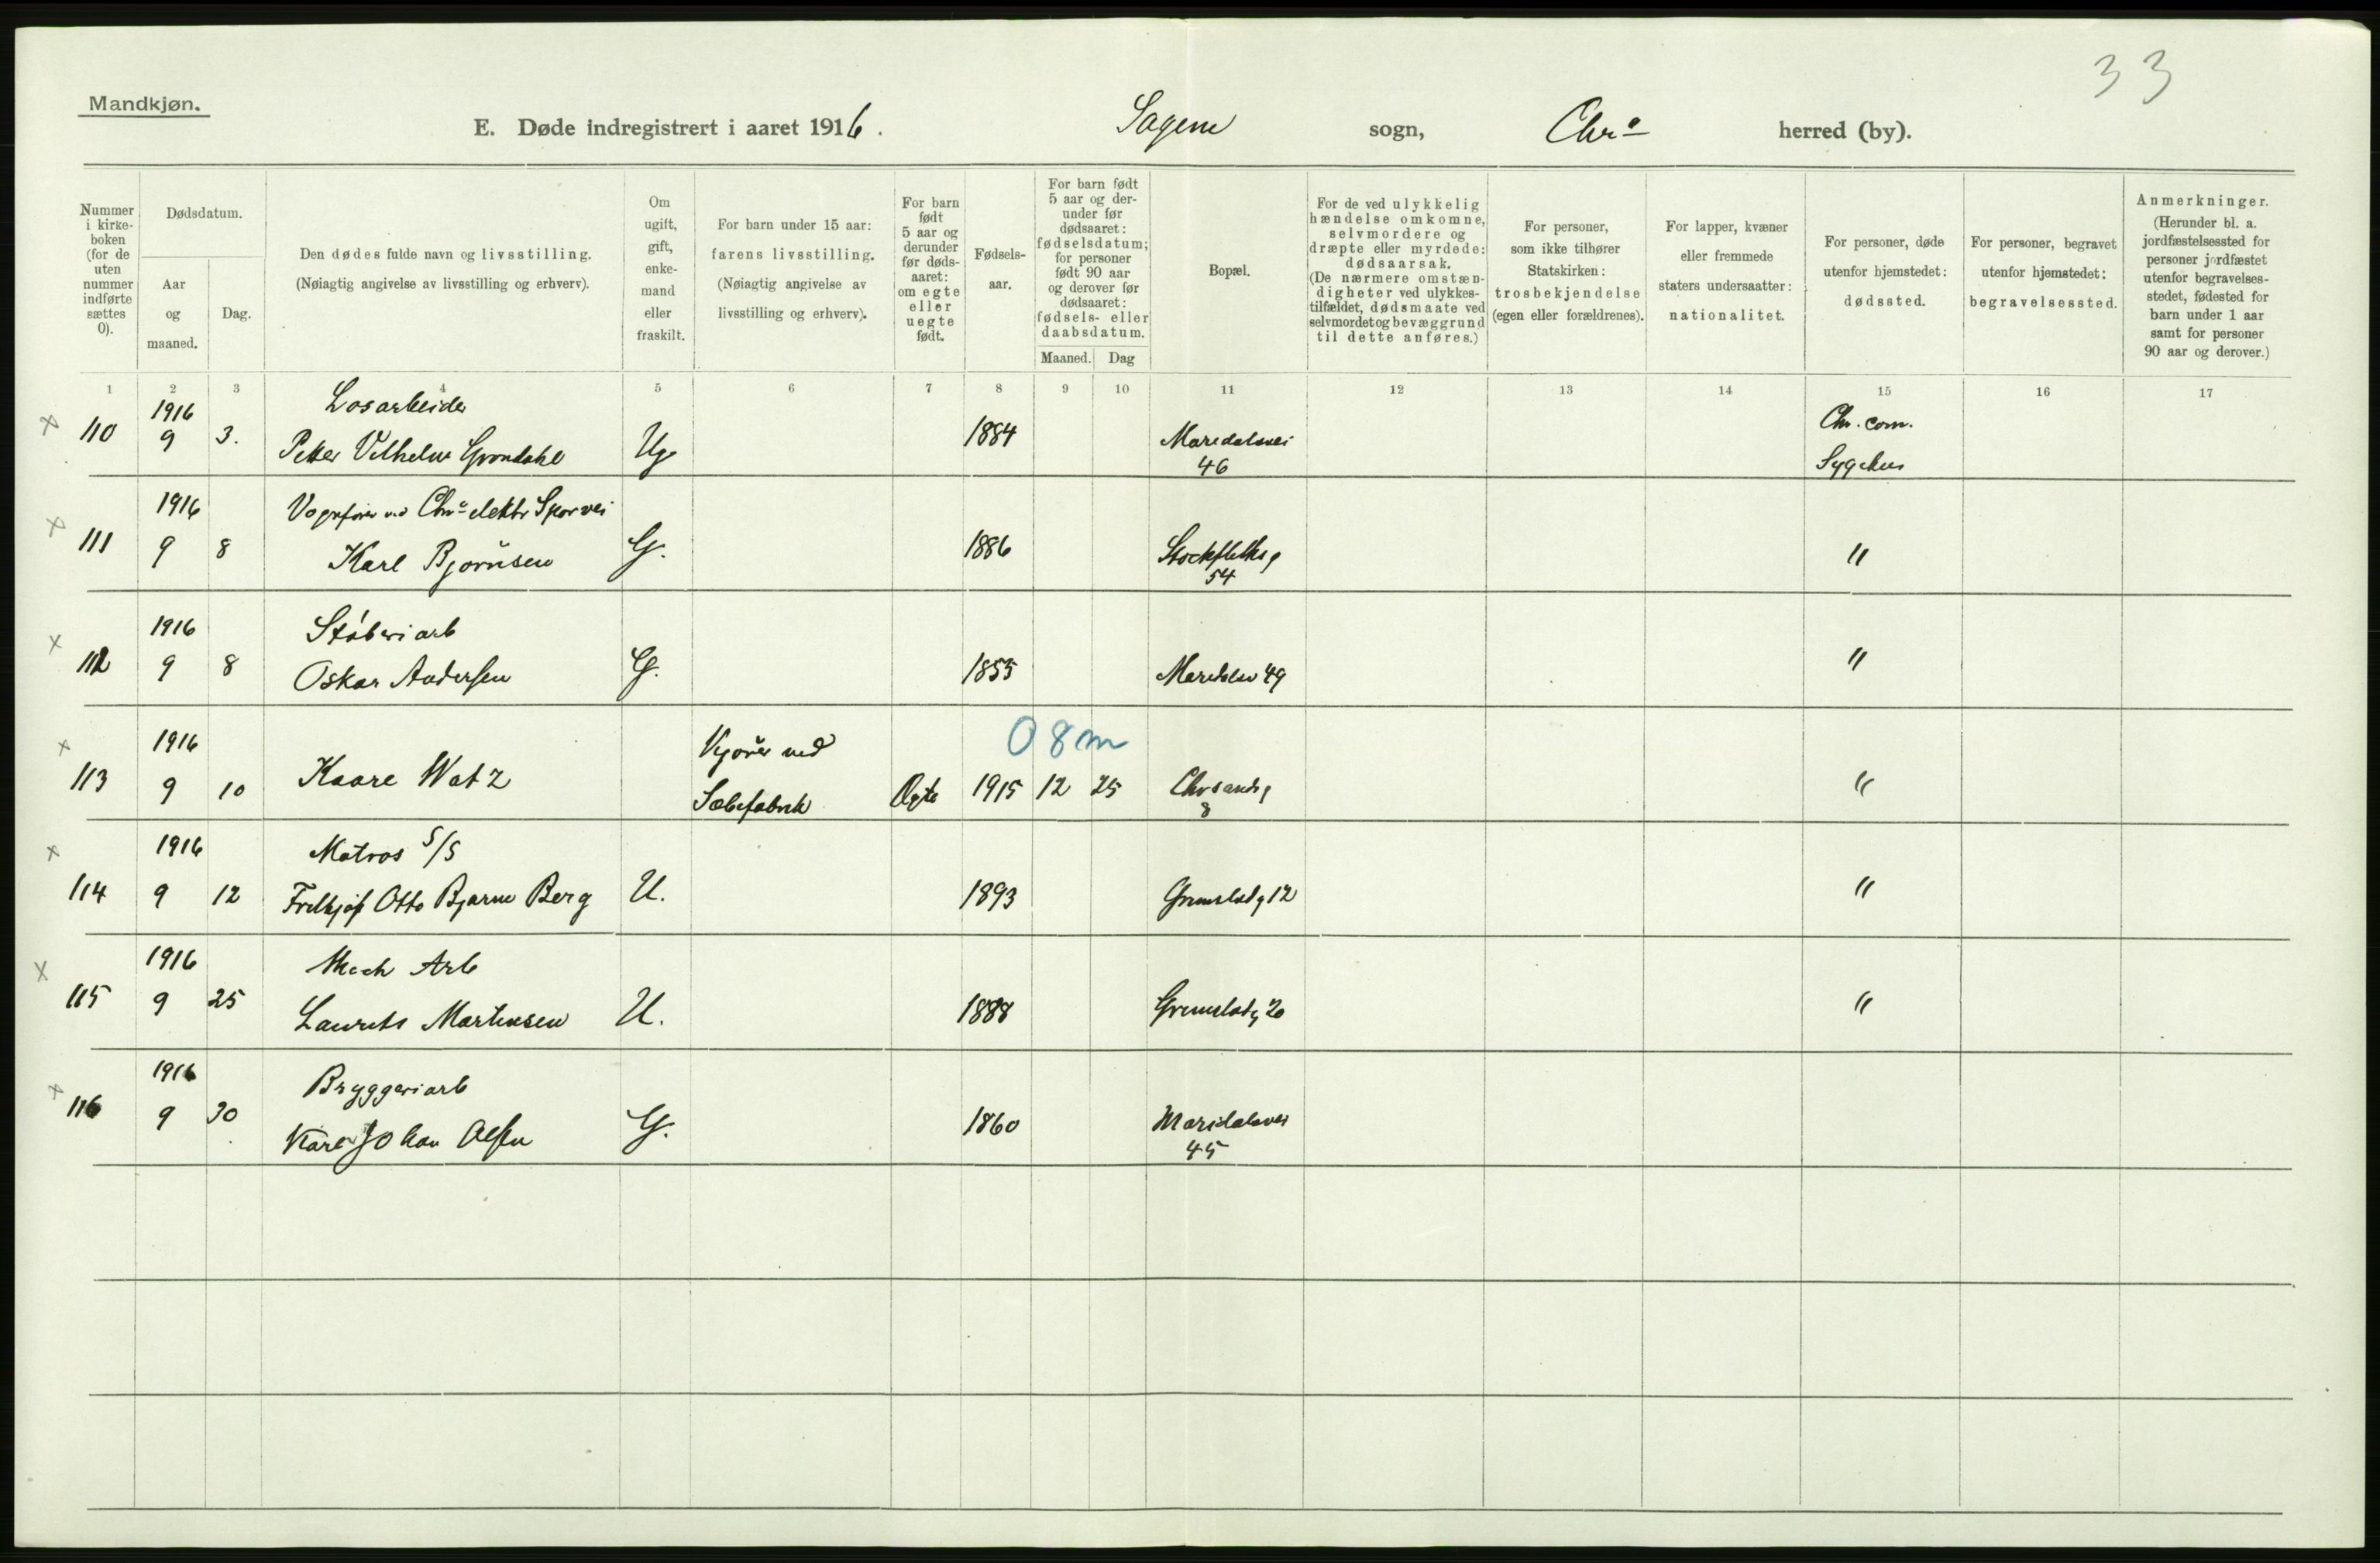 33
Mandkjøn.
E. Døde indregistrert i aaret 1916. Sagene sogn, Chra herred (by).
Nummer i kirke-boken (for de uten nummer indførte sættes 0).
Dødsdatum.
Aar og maaned.
Dag.
Den dødes fulde navn og livsstilling.
(Nøiagtig angivelse av livsstilling og erhverv).
Om ugift, gift, enke-mand eller fraskilt.
For barn under 15 aar: farens livsstilling.
(Nøiagtig angivelse av livsstilling og erhverv).
For barn født 5 aar og derunder før døds-aaret: om egte eller uegte født.
Fødsels-aar.
For barn født 5 aar og der-under før dødsaaret: fødselsdatum; for personer født 90 aar og derover før dødsaaret: fødsels- eller daabsdatum.
Maaned. Dag
Bopæl.
For de ved ulykkelig hændelse omkomne, selvmordere og dræpte eller myrdede: dødsaarsak.
(De nærmere omstæn-digheter ved ulykkes-tilfældet, dødsmaate ved selvmordet og bevæggrund til dette anføres.)
For personer, som ikke tilhører Statskirken: trosbekjendelse (egen eller forældrenes).
For lapper, kvæner eller fremmede staters undersaatter: nationalitet.
For personer, døde utenfor hjemstedet: dødssted.
For personer, begravet utenfor hjemstedet: begravelsessted.
Anmerkninger.
(Herunder bl. a. jordfæstelsessted for personer jordfæstet utenfor begravelses-stedet, fødested for barn under 1 aar samt for personer 90 aar og derover.)
1 2 3 4 5 6 7 8 9 10 11 12 13 14 15 16 17
1916 Losarbeider Chr. com.
x 110 9 3. Petter Vilhelm Grøndahl Ug. 1884 Maridalsvei Sygehus
46
1916 Vognfører ved Chra elektr Sporvei
x 111 9 8 Karl Bjørnsen G. 1886 Stockflethsg "
54
1916 Støberiarb
x 112 9 8 Oskar Andersen G. 1853 49 "
1916 Kjører ved 0 8 m
x 113 9 10 Kaare Watz Sæbefabrik Ægte 1915 12 25 Chrsandsg "
8
1916 Matros S/S
x 114 9 12 Fridtjof Otto Bjarne Berg U. 1893 Grimstadg 12 "
1916 Mech Arb
x 115 9 25 Laurits Martinsen U. 1888 Grimstadg 20 "
1916 Bryggeriarb
x 116 9 30 Karl Johan Olsen G. 1860 Maridalsvei
45